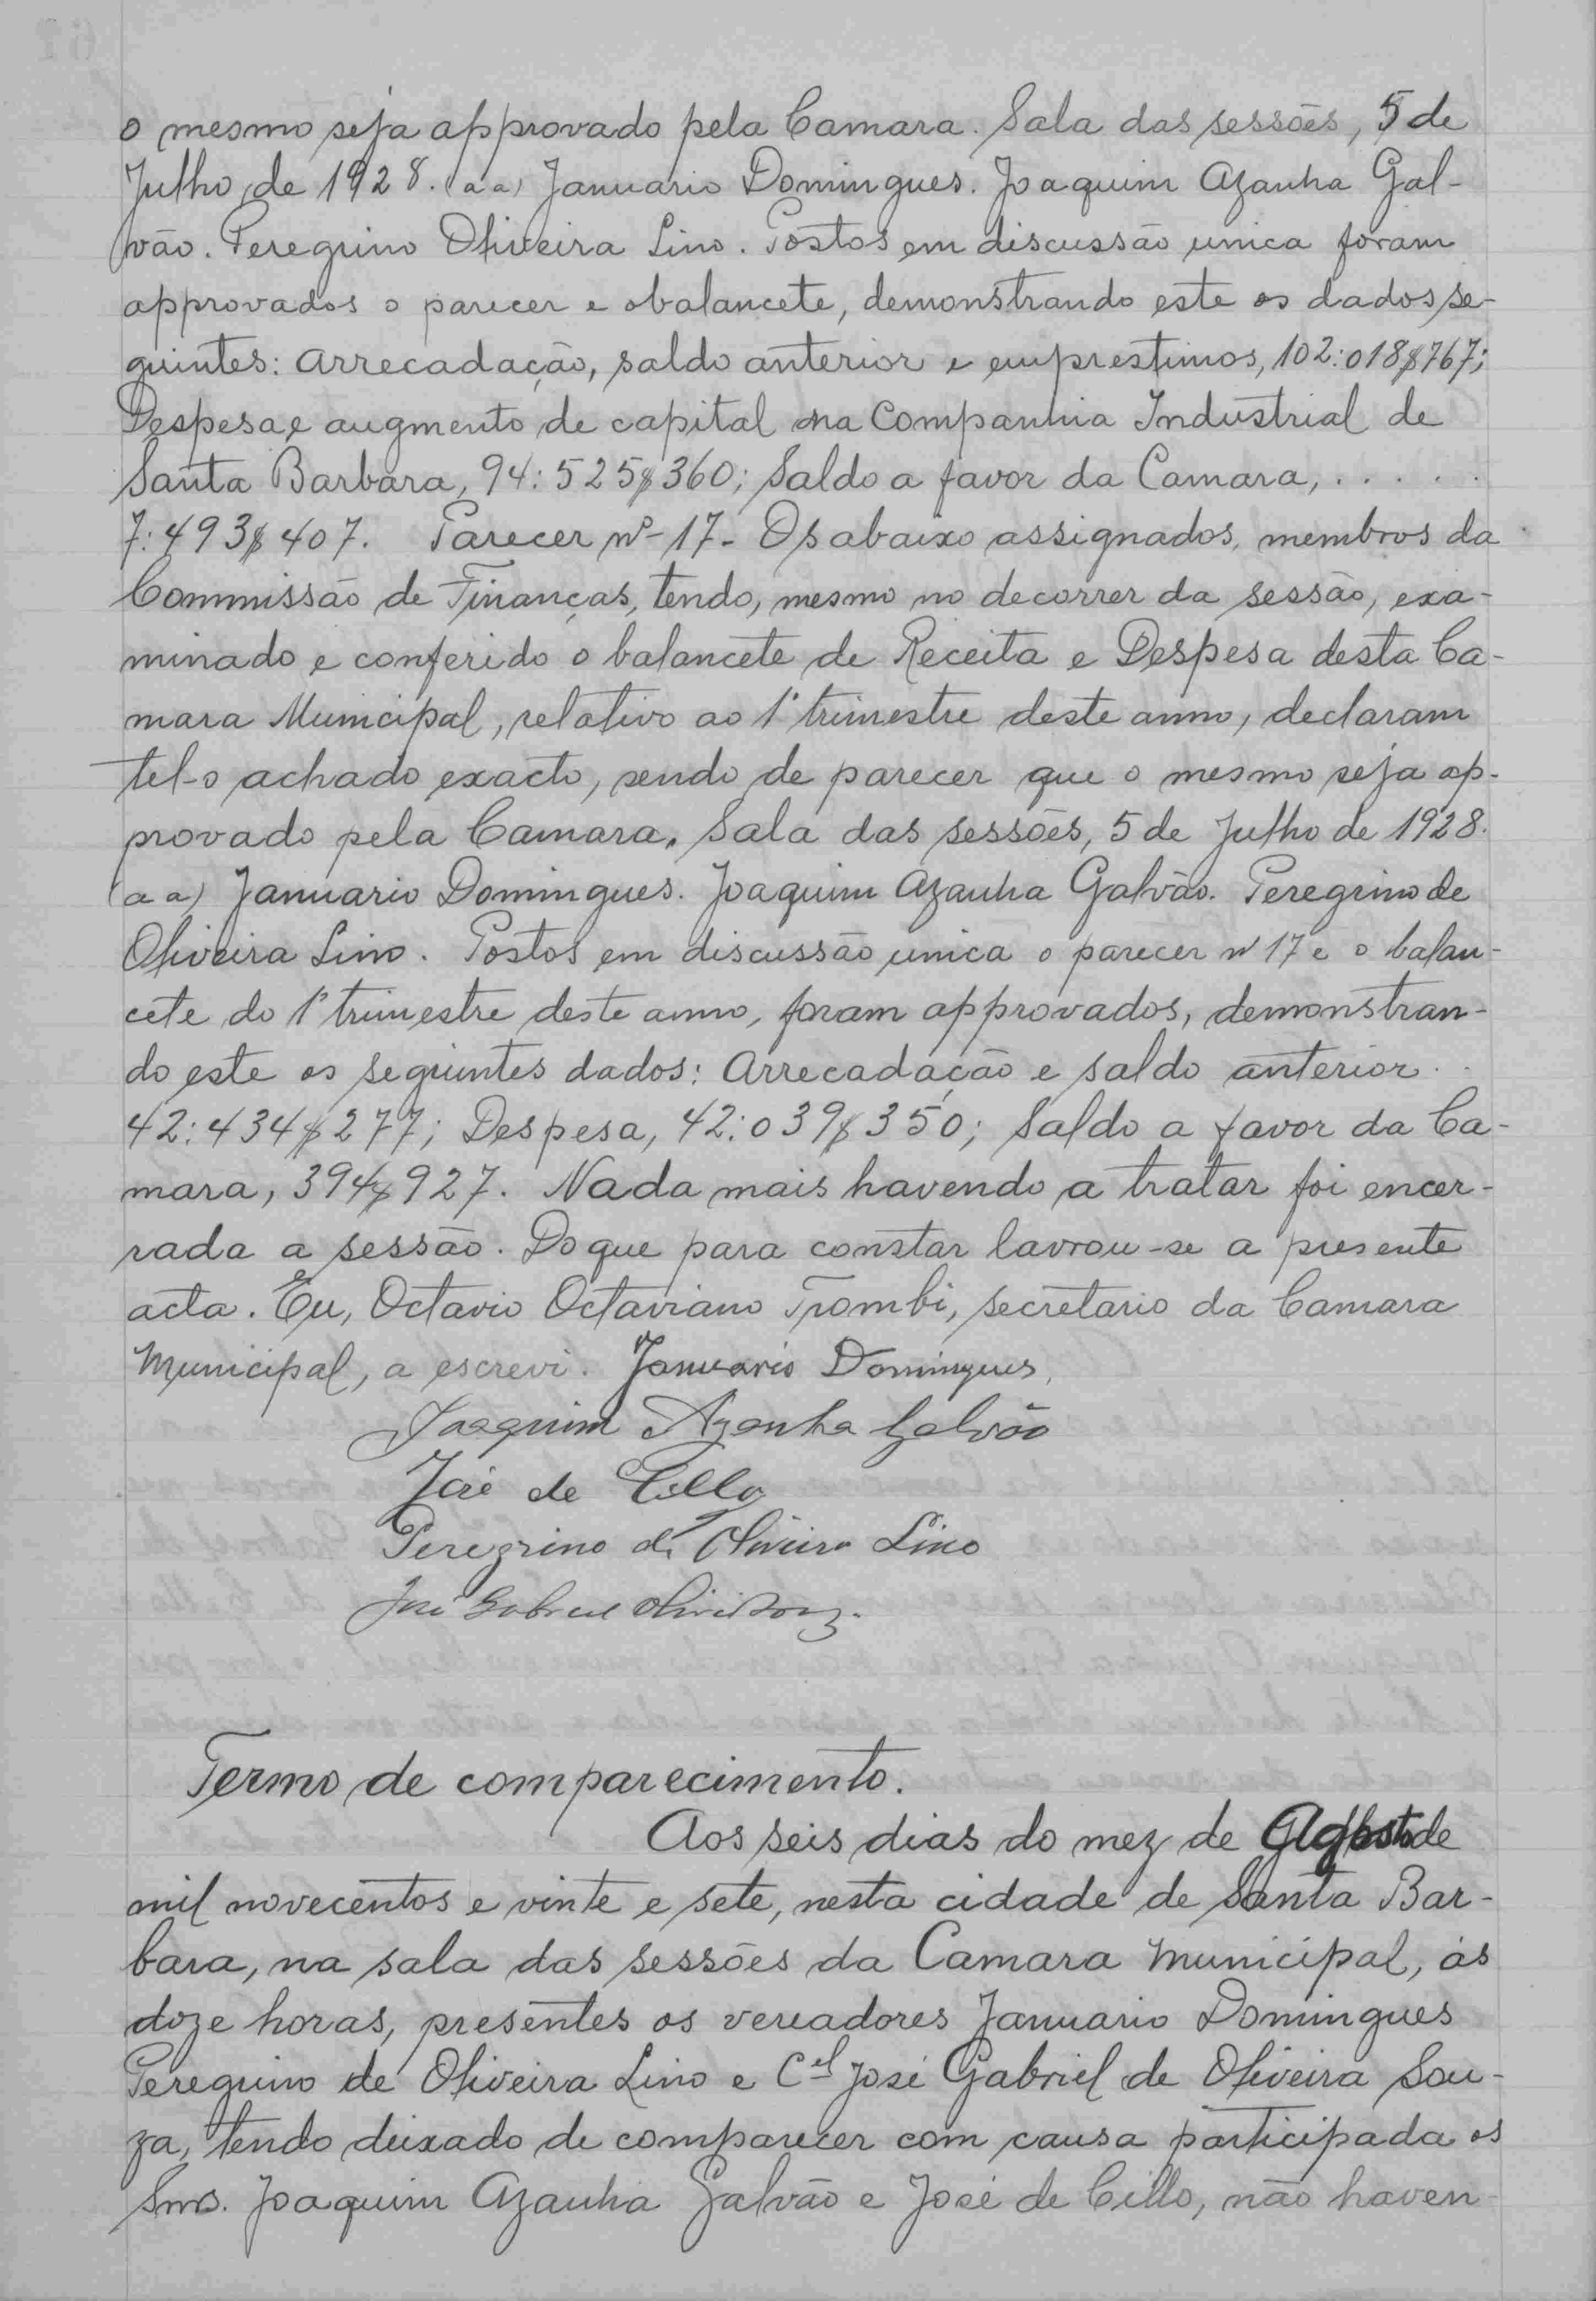 o mesmo seja approvado pela Camara. Sala das sessões, 5 de
Julho, de 1928. (a a) Januario Domingues. Joaquim Azanha Gal-
vão. Peregrino Oliveira Lino. Postos em discussão unica foram
approvados o parecer e o balancete, demonstrando este os dados se-
guintes: Arrecadação, saldo anterior e emprestimos, 102:018$767;
Despesa e augmento de capital na Companhia Industrial de
Santa Barbara, 94:525$360; Saldo a favor da Camara, . . . . .
7:493$407. Parecer nº 17 - Os abaixo assignados, membros da
Commissão de Finanças, tendo, mesmo no decorrer da sessão, exa-
minado e conferido o balancete de Receita e Despesa desta Ca-
mara Municipal, relativo ao 1º trimestre deste anno, declaram
tel-o achado exacto, sendo de parecer que o mesmo seja ap-
provado pela Camara. Sala das sessões, 5 de Julho de 1928.
(a a) Januario Domingues. Joaquim Azanha Galvão. Peregrino de
Oliveira Lino. Postos em discussão unica o parecer nº 17 e o balan-
cete do 1º trimestre deste anno, foram approvados, demonstran-
do este os seguintes dados: Arrecadação e saldo anterior . .
42:434$277; Despesa, 42:039$350; Saldo a favor da Ca-
mara, 394$927. Nada mais havendo a tratar foi encer-
rada a sessão. Do que para constar lavrou-se a presente
acta. Eu, Octavio Octaviano Trombi, secretario da Camara
Municipal, a escrevi. Januario Domingues,
Joaquim Azanha Galvão
José de Cillo
Peregrino de Oliveira Lino
José Gabriel Oliv Souz.
Termo de comparecimento.
Aos seis dias do mez de Agosto de
mil novecentos e vinte e sete, nesta cidade de Santa Bar-
bara, na sala das sessões da Camara Municipal, ás
doze horas, presentes os vereadores Januario Domingues
Peregrino de Oliveira Lino e Cel José Gabriel de Oliveira Sou-
za, tendo deixado de comparecer com causa participada os
Snrs. Joaquim Azanha Galvão e José de Cillo, não haven-